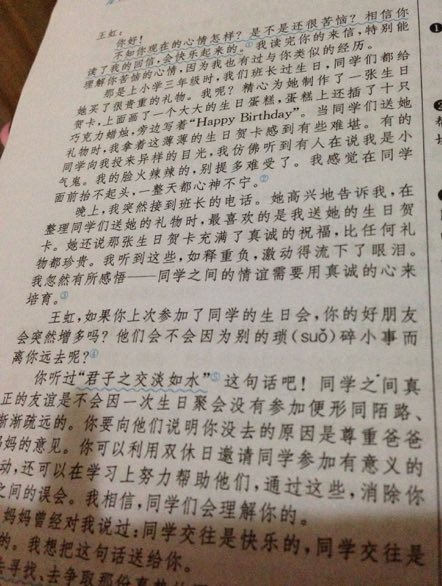 王虹：
你好！
不知你现在的心情怎样？是不是还很苦恼？相信你
读了我的回信，会快乐起来的。①我读完你的来信，特别能
理解你苦恼的心情，因为我也有过与你类似的经历。
那是上小学三年级时，我们班长过生日，同学们都给
她买了很贵重的礼物。我呢？精心为她制作了一张生日
贺卡，上面画了一个大大的生日蛋糕，蛋糕上还插了十只
巧克力蜡烛，旁边写着“Happy Birthday”。当同学们送她
礼物时，我拿着这薄薄的生日贺卡感到有些难堪。有的
同学向我投来异样的目光，我仿佛听到有人在说我是小
气鬼。我的脸火辣辣的，别提多难受了。我感觉在同学
面前抬不起头，一整天都心神不宁。②
晚上，我突然接到班长的电话。她高兴地告诉我，在
整理同学们送她的礼物时，最喜欢的是我送她的生日贺
卡。她还说那张生日贺卡充满了真诚的祝福，比任何礼
物都珍贵。我听到这些，如释重负，激动得流下了眼泪。
我忽然有所感悟——同学之间的情谊需要用真诚的心来
培育。③
王虹，如果你上次参加了同学的生日会，你的好朋友
会突然增多吗？他们会不会因为别的琐(suǒ)碎小事而
离你远去呢？④
你听过“君子之交淡如水”⑤这句话吧！同学之间真
正的友谊是不会因一次生日聚会没有参加便形同陌路、
渐渐疏远的。你要向他们说明你没去的原因是尊重爸爸
妈妈的意见。你可以利用双休日邀请同学参加有意义的
动，还可以在学习上努力帮助他们，通过这些，消除你
之间的误会。我相信，同学们会理解你的。
妈妈曾经对我说过：同学交往是快乐的，同学交往是
的。我想把这句话送给你。
去寻找、去争取那份